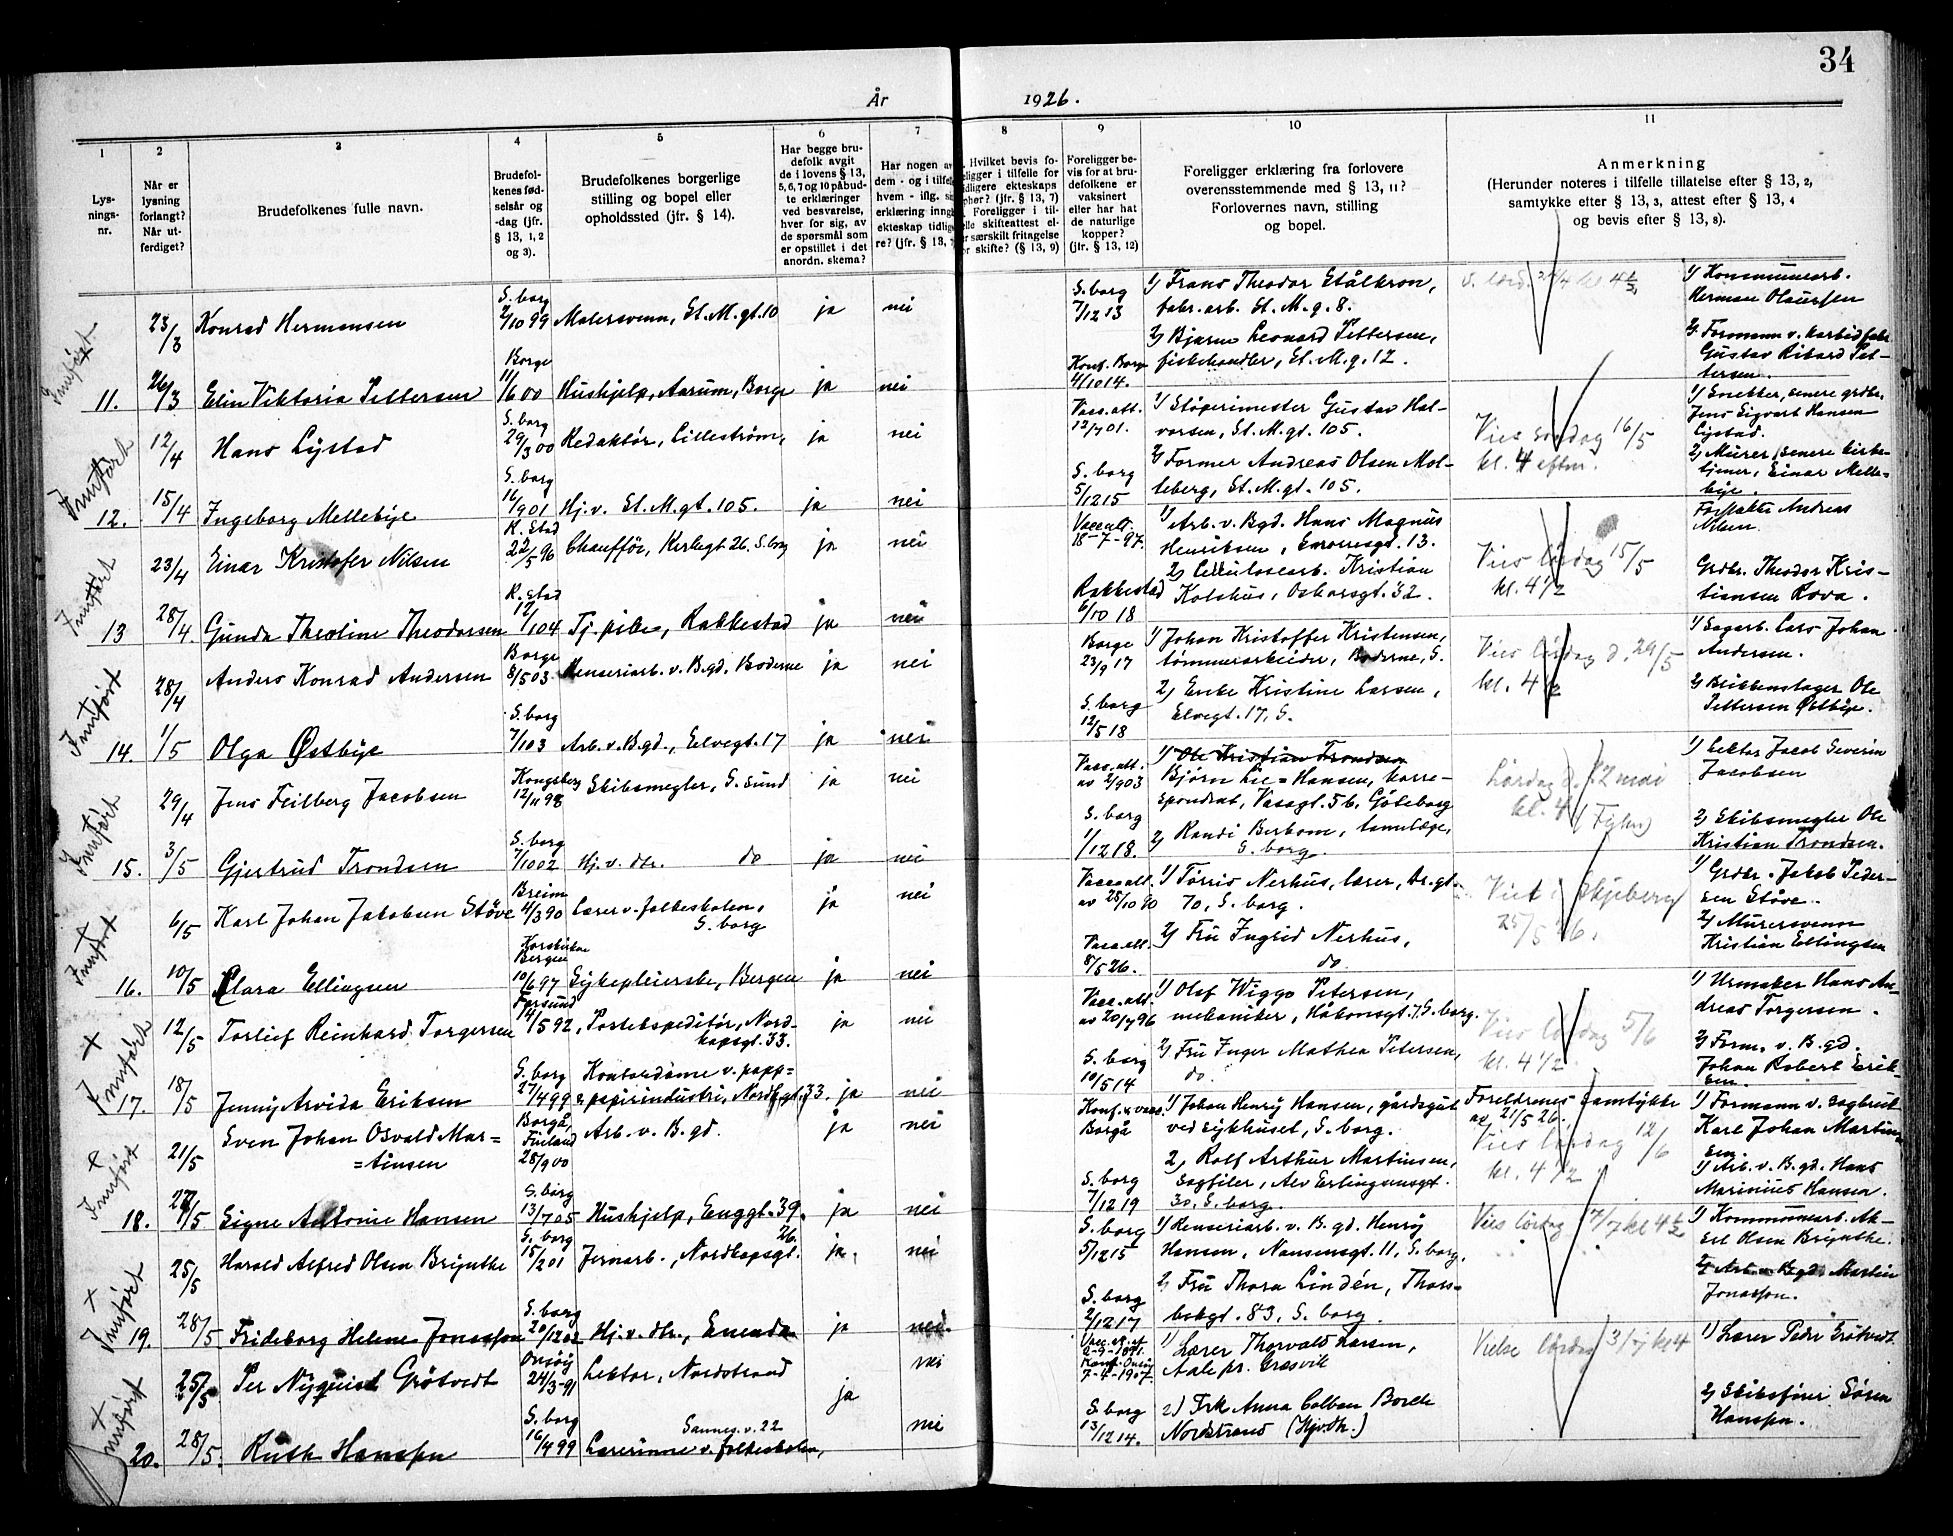 34
År 1926.
1 2 3 4 5 6 7 8 9 10 11
Lysningsnr.
Når er lysning forlangt? Når utferdiget?
Brudefolkenes fulle navn.
Brudefolkenes fødselsår og -dag (jfr. § 13, 1, 2 og 3).
Brudefolkenes borgerlige stilling og bopel eller opholdssted (jfr. § 14).
Har begge brudefolk avgit de i lovens § 13, 5, 6, 7 og 10 påbudte erklæringer ved besvarelse, hver for sig, av de spørsmål som er opstillet i det anordn. skema?
Foreligger bevis for at brudefolkene er vaksinert eller har hat de naturlige kopper? (jfr. § 13, 12)
Foreligger erklæring fra forlovere overensstemmende med § 13, 11? Forlovernes navn, stilling og bopel.
Anmerkning
(Herunder noteres i tilfelle tillatelse efter § 13, 2, samtykke efter § 13, 3, attest efter § 13, 4 og bevis efter § 13, 8).
Innført
23/3 Konrad Hermansen S. borg 2/10 99 Malersvenn, St. M. gt. 10 ja nei S. borg 7/12 13 1) Frans Theodor Stålkron, fabr. arb. St. M. g. 8. 1) Kommunearb. Herman Olaussen
11. 26/3 Elin Viktoria Pettersen Borge 11/6 00 Hushjelp, Aarum, Borge ja nei Konf. Borge 4/10 14. 2) Bjarne Leonard Pettersen, fiskehandler, St. M. g. 12. 2) Formann v. karbidfabr. Gustav Rikard Pettersen.
Innført
12/4 Hans Lystad S. borg 29/3 00 Redaktør, Lillestrøm, ja nei Vacc. att. 12/7 01. 1) Støperimester Gustav Halvorsen, St. M. gt. 105. Vies søndag 16/5 kl. 4 eftm. 1) Snekker, senere grdbr. Jens Sigvart Hansen Lystad.
12. 15/4 Ingeborg Mellebye S. borg 16/9 01 Hj. v. St. M. gt. 105. ja nei S. borg 5/12 15 2) Former Andreas Olsen Molteberg, St. M. gt. 105. 2) Murer, senere kirketjener, Einar Mellebye.
Innført
23/4 Einar Kristofer Nilsen R. stad 22/5 96 Chauffør, Kirkegt 26, S. borg ja nei Vacc att. 18-7-97. 1) Arb. v. Bgd. Hans Magnus Henriksen, gt. 13. Vies lørdag 15/5 kl. 4 1/2 Andreas Nilsen.
13 28/4. Gunda Theoline Theodorsen R. stad 12/1 04 Tj. pike, Rakkestad ja nei Rakkestad 6/10 18 2) Cellulosearb. Kristian Kolshus, Oskarsgt. 32. Grdbr. Theodor Kristiansen Rova.
Innført
28/4 Anders Konrad Andersen Borge 8/5 03. Renseriarb. v. B. gd. Boderne ja nei Borge 23/9 17 1) Johan Kristoffer Kristensen, tømmerarbeider, Boderne, S. Vies lørdag d. 29/5 kl. 4 1/2 1) Sagarb. Lars Johan Andersen.
14. 1/5 Olga Østbye S. borg 7/1 03 Arb. v. B. gd., Elvegt. 17 ja nei S. borg 12/5 18 2) Enke Kristine Larsen, Elvegt. 17, S. 2) Brikkenslager Ole Pettersen Østbye.
Innført
29/4 Jens Feilberg Jacobsen Kongsberg 12/11 98 Skibsmegler, S. sund ja nei Vacc. att. av 2/9 03 1) Ole Kristian Trondsen Bjørn Lie-Hansen, korrespondent, Vasagt. 5 b, Göteborg Lørdag d. 12 mai kl. 4 1) Lektor Jacob Severin Jacobsen
15. 3/5 Gjertrud Trondsen S. borg 7/10 02 Hj. v. do ja nei S. borg 1/12 18. 2) Randi Berbom, tannlæge, S. borg. 2) Skibsmegler Ole Kristian Trondsen.
Innført
6/5 Karl Johan Jakobsen Støve Breim 4/3 90 Lærer v. folkeskolen, S. borg ja nei Vacc. att. av 28/10 90 1) Torris Nerhus, lærer, Dr. gt. 70, S. borg. Viet i Skjeberg 25/5 26. 1) Grdbr. Jakob Pedersen Støve.
16. 10/5 Clara Ellingsen Korskirken Bergen 10/6 97 Sykepleierske, Bergen ja nei Vacc. att. 8/5 26. 2) Fru Ingrid Nerhus, do. 2) Murersvenn Kristian Ellingsen
+ Innført
12/5 Torlief Reinhard Torgersen Farsund 14/1 5 92, Postekspeditør, Nordkapsgt. 33. ja nei Vacc. att. av 20/7 96 1) Olaf Wiggo Petersen, mekaniker, Håkonsgt. 7, S. borg. Vies lørdag 5/6 kl. 4 1/2. 1) Urmaker Hans Andreas Torgersen.
17. 18/5 Jenny Arvida Eriksen S. borg 27/4 99 Kontordame v. papp= & papirindustri, Nordk. gt. 33. ja nei S. borg 10/5 14 2) Fru Inger Mathea Petersen, do. 2) Form. v. B. gd. Johan Robert Eriksen.
+ Innført
21/5 Sven Johan Osvald Mar= =tinsen Borgå, Finland 28/9 00 Arb. v. B. gd. ja nei Konf. & vacc. Borgå 1) Johan Henry Hansen, gårdsgutt ved sykhuset, S. borg. Foreldrenes samtykke av 21/5 26. Vies lørdag 12/6 kl. 4 1/2 1) Formann v. sagbruk Karl Johan Martinsen.
18. 27/5 Signe Antonie Hansen S. borg 13/7 05 Hushjelp, Enggt. 39. ja nei S. borg 7/12 19 2) Rolf Arthur Martinsen, sagfiler, Alv Erlingsønsgt. 30, S. borg. 1) Arb. v. B. gd. Hans Marinius Hansen.
+ Innført
25/5 Harald Alfred Olsen Brynthe S. borg 15/2 01 Jernarb., Nordkapsgt. 26. ja. nei S. borg 5/12 15 1) Renseriarb. v. B. gd. Henry Hansen, Nansensgt. 11, S. borg. Vies lørdag 7/7 kl 4 1/2 1) Kommunearb. Aksel Olsen Brynthe.
19. 28/5 Frideborg Helene Jonasson S. borg 20/12 02 Hj. v. dtr., Enenda ja nei. S. borg 2/12 17 2) Fru Thora Lindén, Thorsbekgt. 83, S. borg. 2) Arb. v. B. gd. Martin Jonasson.
+ Innført
25/5. Per Nyquist Grøtvedt Onsøy 24/3-91 Lektor, Nordstrand ja nei Konf. Onsøy 7-4-1907. 1) Lærer Thorvald Larsen, Aale pr. Græsvik Vielse lørdag 3/7 kl 4 1) Lærer Peder Grøtvedt.
20. 28/5. Ruth Hanssen S. borg 16/4 99 Sannes. v. 22 Lærerinne v. folkeskolen, nei S. borg 13/12 14. 2) Frk Anna Colban Borch Nordstrand (Hjv. dtr.) 2) Skibsfører Søren Hanssen.